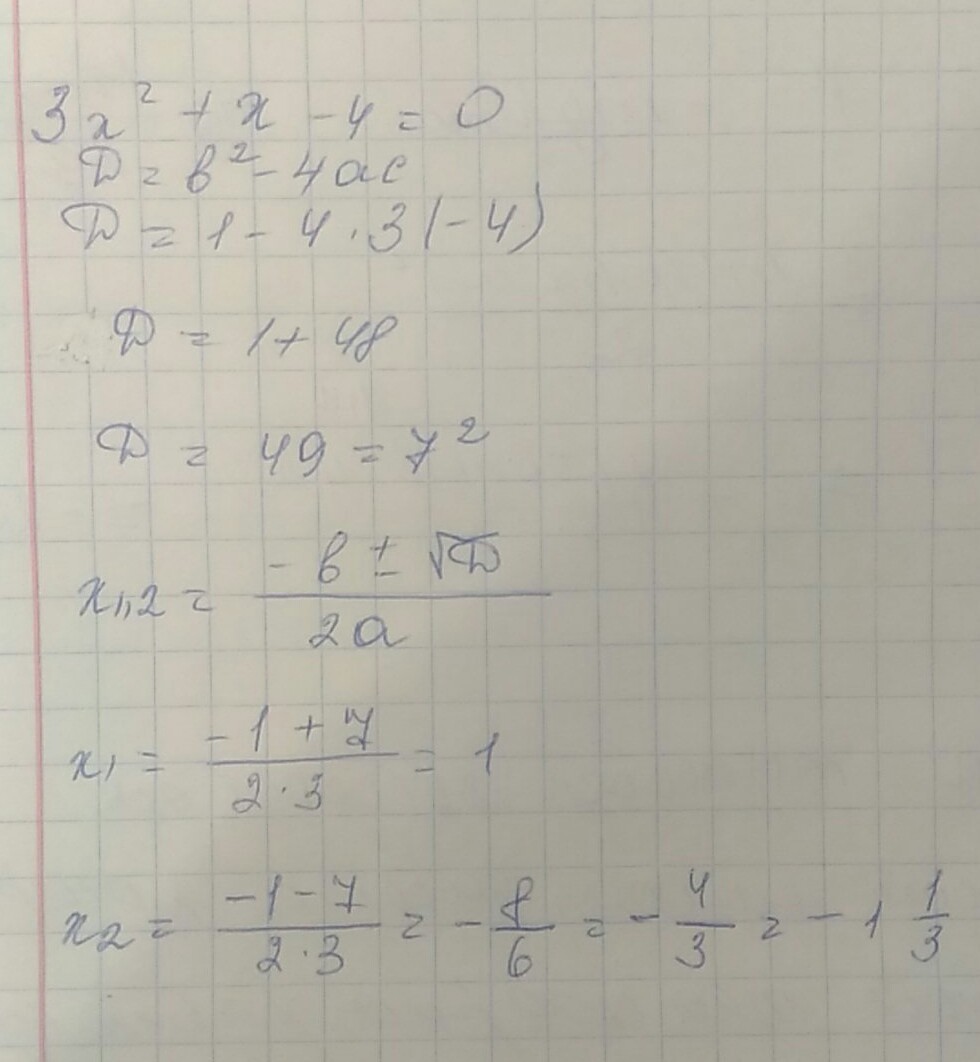 3x² + x - 4 = 0
D = b² - 4ac
D = 1 - 4 · 3(-4)
D = 1 + 48
D = 49 = 7²
x₁,₂ = (-b ± √D) / (2a)
x₁ = (-1 + 7) / (2·3) = 1
x₂ = (-1 - 7) / (2·3) = -8/6 = -4/3 = -1 1/3